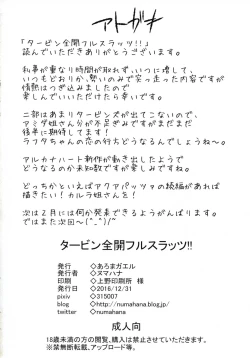 アトガキ
「タービン全開フルスラッツ!!」
読んでいただきありがとうございます。
私事が重なり時間が取れず、いつに増して、
いつもどおりか、勢いのみで突っ走った内容ですが
情熱はつぎ込みましたので
楽しんでいいただけたら幸いです。
二部はあまりタービンズが出てこないので、
アミダ姐さん分が不足ぎみですがまだまだ
後半に期待してます!
ラフタちゃんの恋の行方もどうなるんでしょうね〜。
アルカナハート新作が動き出したようで
どうなるのか未知数ですが、楽しみです。
どっちかといえばアクアパッツァの続編があれば
描きたい!カルラ姐さんを!
次は2月には何か発表できるようがんばります。
ではまた次回〜(^_^)/~
タービン全開フルスラッツ!!
発行 ◇あろまガエル
発行者 ◇ヌマハナ
印刷 ◇上野印刷所 様
発行日 ◇2016/12/31
pixiv ◇315007
blog ◇http://numahana.blog.jp/
twitter ◇numahana
成人向
18歳未満の方の閲覧、購入は禁止させていただきます。
※禁無断転載、アップロード等。